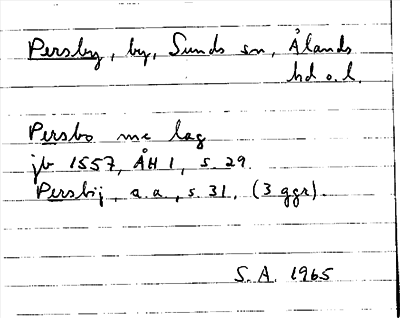 Persby, by, Sunds sn, Ålands
hd o. l.
Persbo me lag
jb 1557, ÅH 1, s. 29.
Persbij, a.a., s. 31, (3 ggr).
S. A. 1965